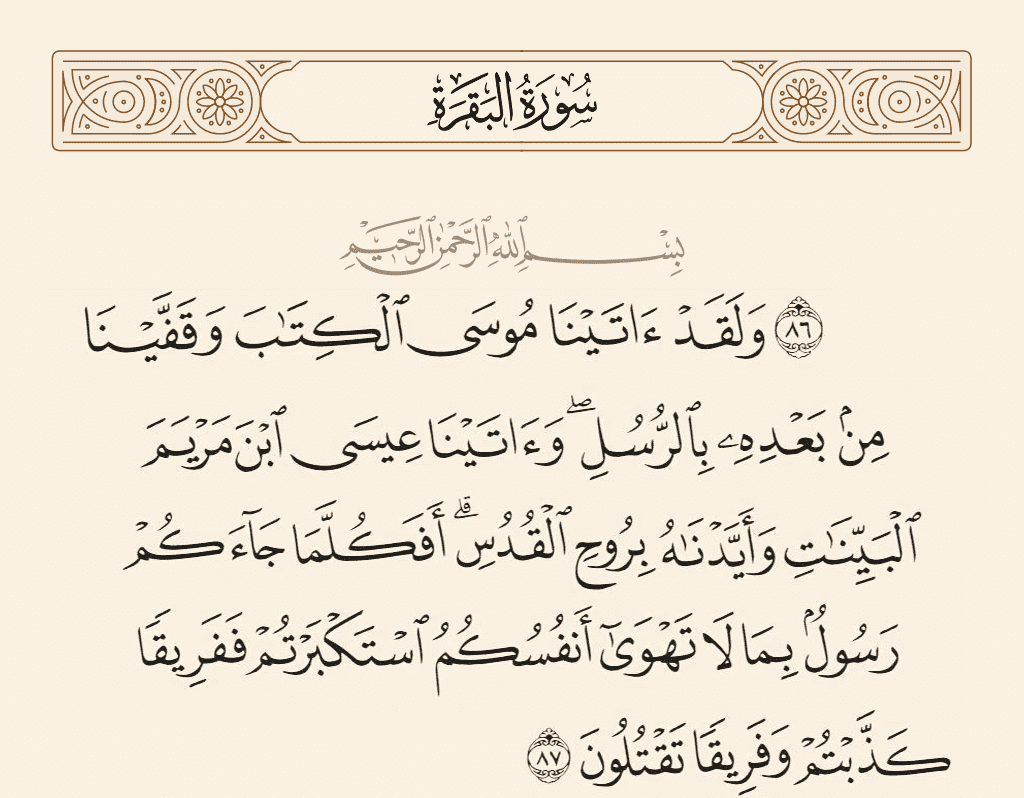 سُورَةُ البَقَرَةِ
بِسْمِ ٱللَّهِ ٱلرَّحْمَٰنِ ٱلرَّحِيمِ
۝٨٦ وَلَقَدْ ءَاتَيْنَا مُوسَى ٱلْكِتَٰبَ وَقَفَّيْنَا
مِنۢ بَعْدِهِۦ بِٱلرُّسُلِۖ وَءَاتَيْنَا عِيسَى ٱبْنَ مَرْيَمَ
ٱلْبَيِّنَٰتِ وَأَيَّدْنَٰهُ بِرُوحِ ٱلْقُدُسِۗ أَفَكُلَّمَا جَآءَكُمْ
رَسُولُۢ بِمَا لَا تَهْوَىٰٓ أَنفُسُكُمُ ٱسْتَكْبَرْتُمْ فَفَرِيقًا
كَذَّبْتُمْ وَفَرِيقًا تَقْتُلُونَ ۝٨٧